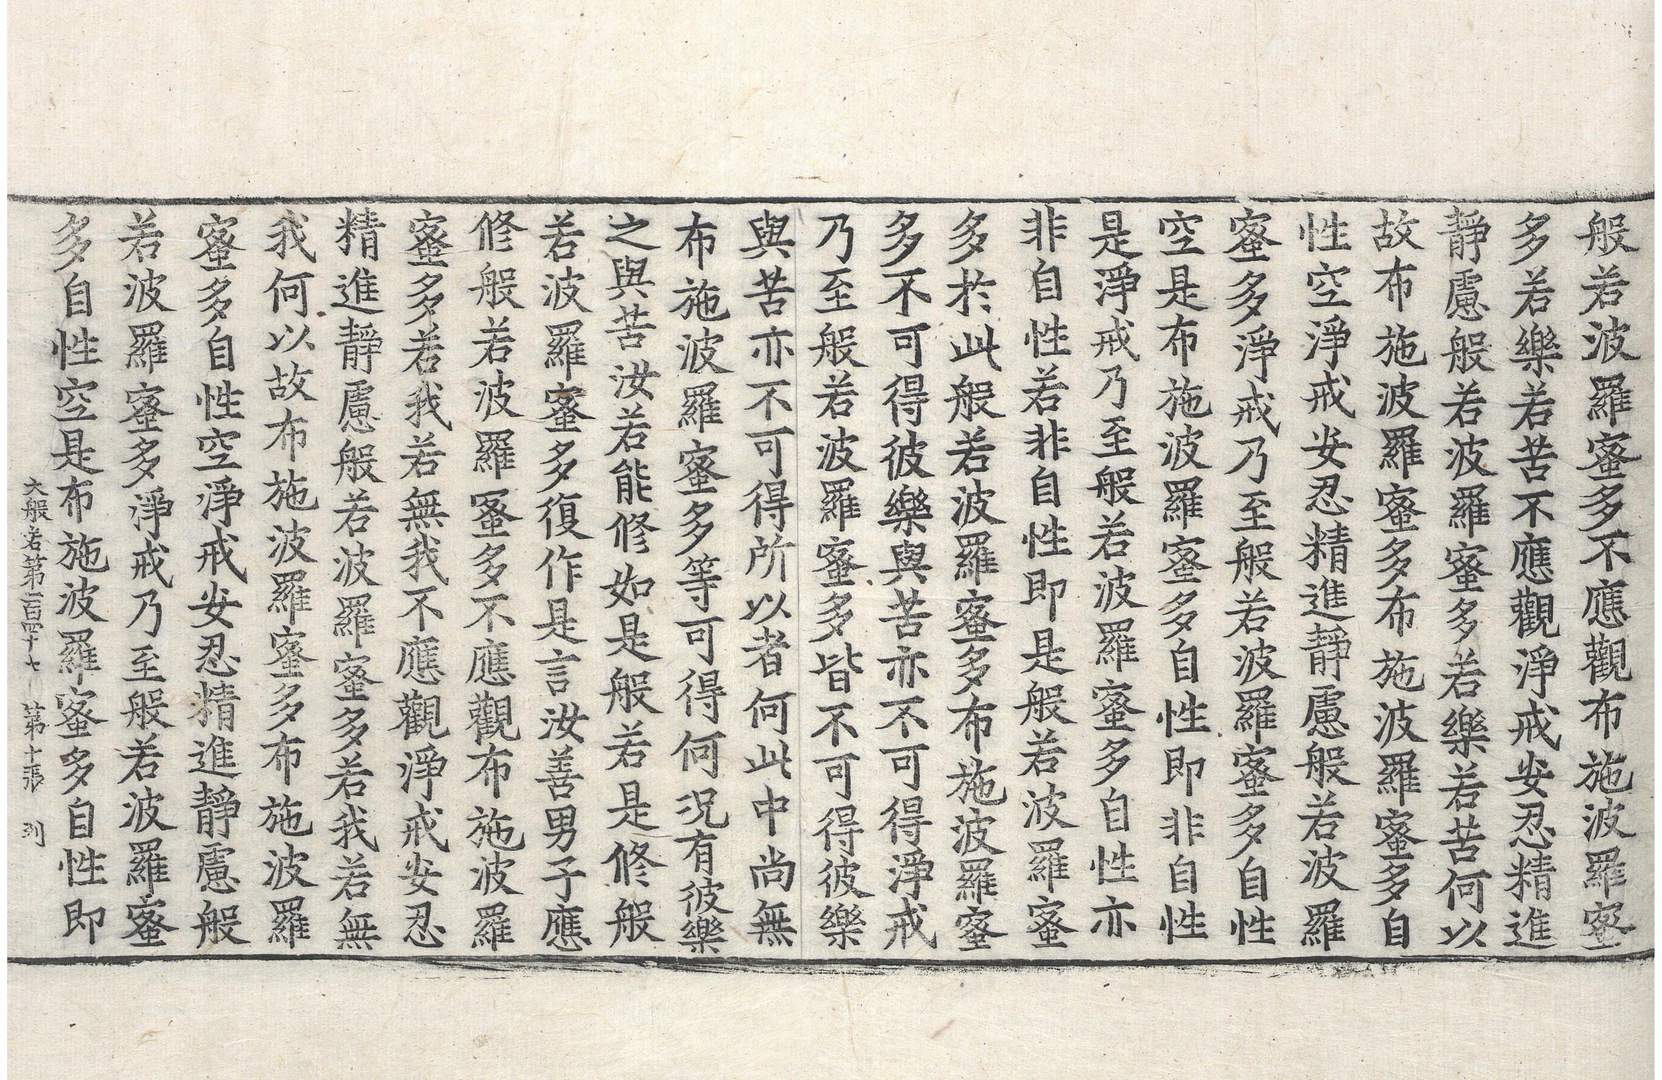 般若波羅蜜多不應觀布施波羅蜜
多若樂若苦不應觀淨戒安忍精進
靜慮般若波羅蜜多若樂若苦何以
故布施波羅蜜多布施波羅蜜多自
性空淨戒安忍精進靜慮般若波羅
蜜多淨戒乃至般若波羅蜜多自性
空是布施波羅蜜多自性即非自性
是淨戒乃至般若波羅蜜多自性亦
非自性若非自性即是般若波羅蜜
多於此般若波羅蜜多布施波羅蜜
多不可得彼樂與苦亦不可得淨戒
乃至般若波羅蜜多皆不可得彼樂
與苦亦不可得所以者何此中尚無
布施波羅蜜多等可得何况有彼樂
之與苦汝若能修如是般若是修般
若波羅蜜多復作是言汝善男子應
修般若波羅蜜多不應觀布施波羅
蜜多若我若無我不應觀淨戒安忍
精進靜慮般若波羅蜜多若我若無
我何以故布施波羅蜜多布施波羅
蜜多自性空淨戒安忍精進靜慮般
若波羅蜜多淨戒乃至般若波羅蜜
多自性空是布施波羅蜜多自性即
大般若第一百四十七 第十張 列